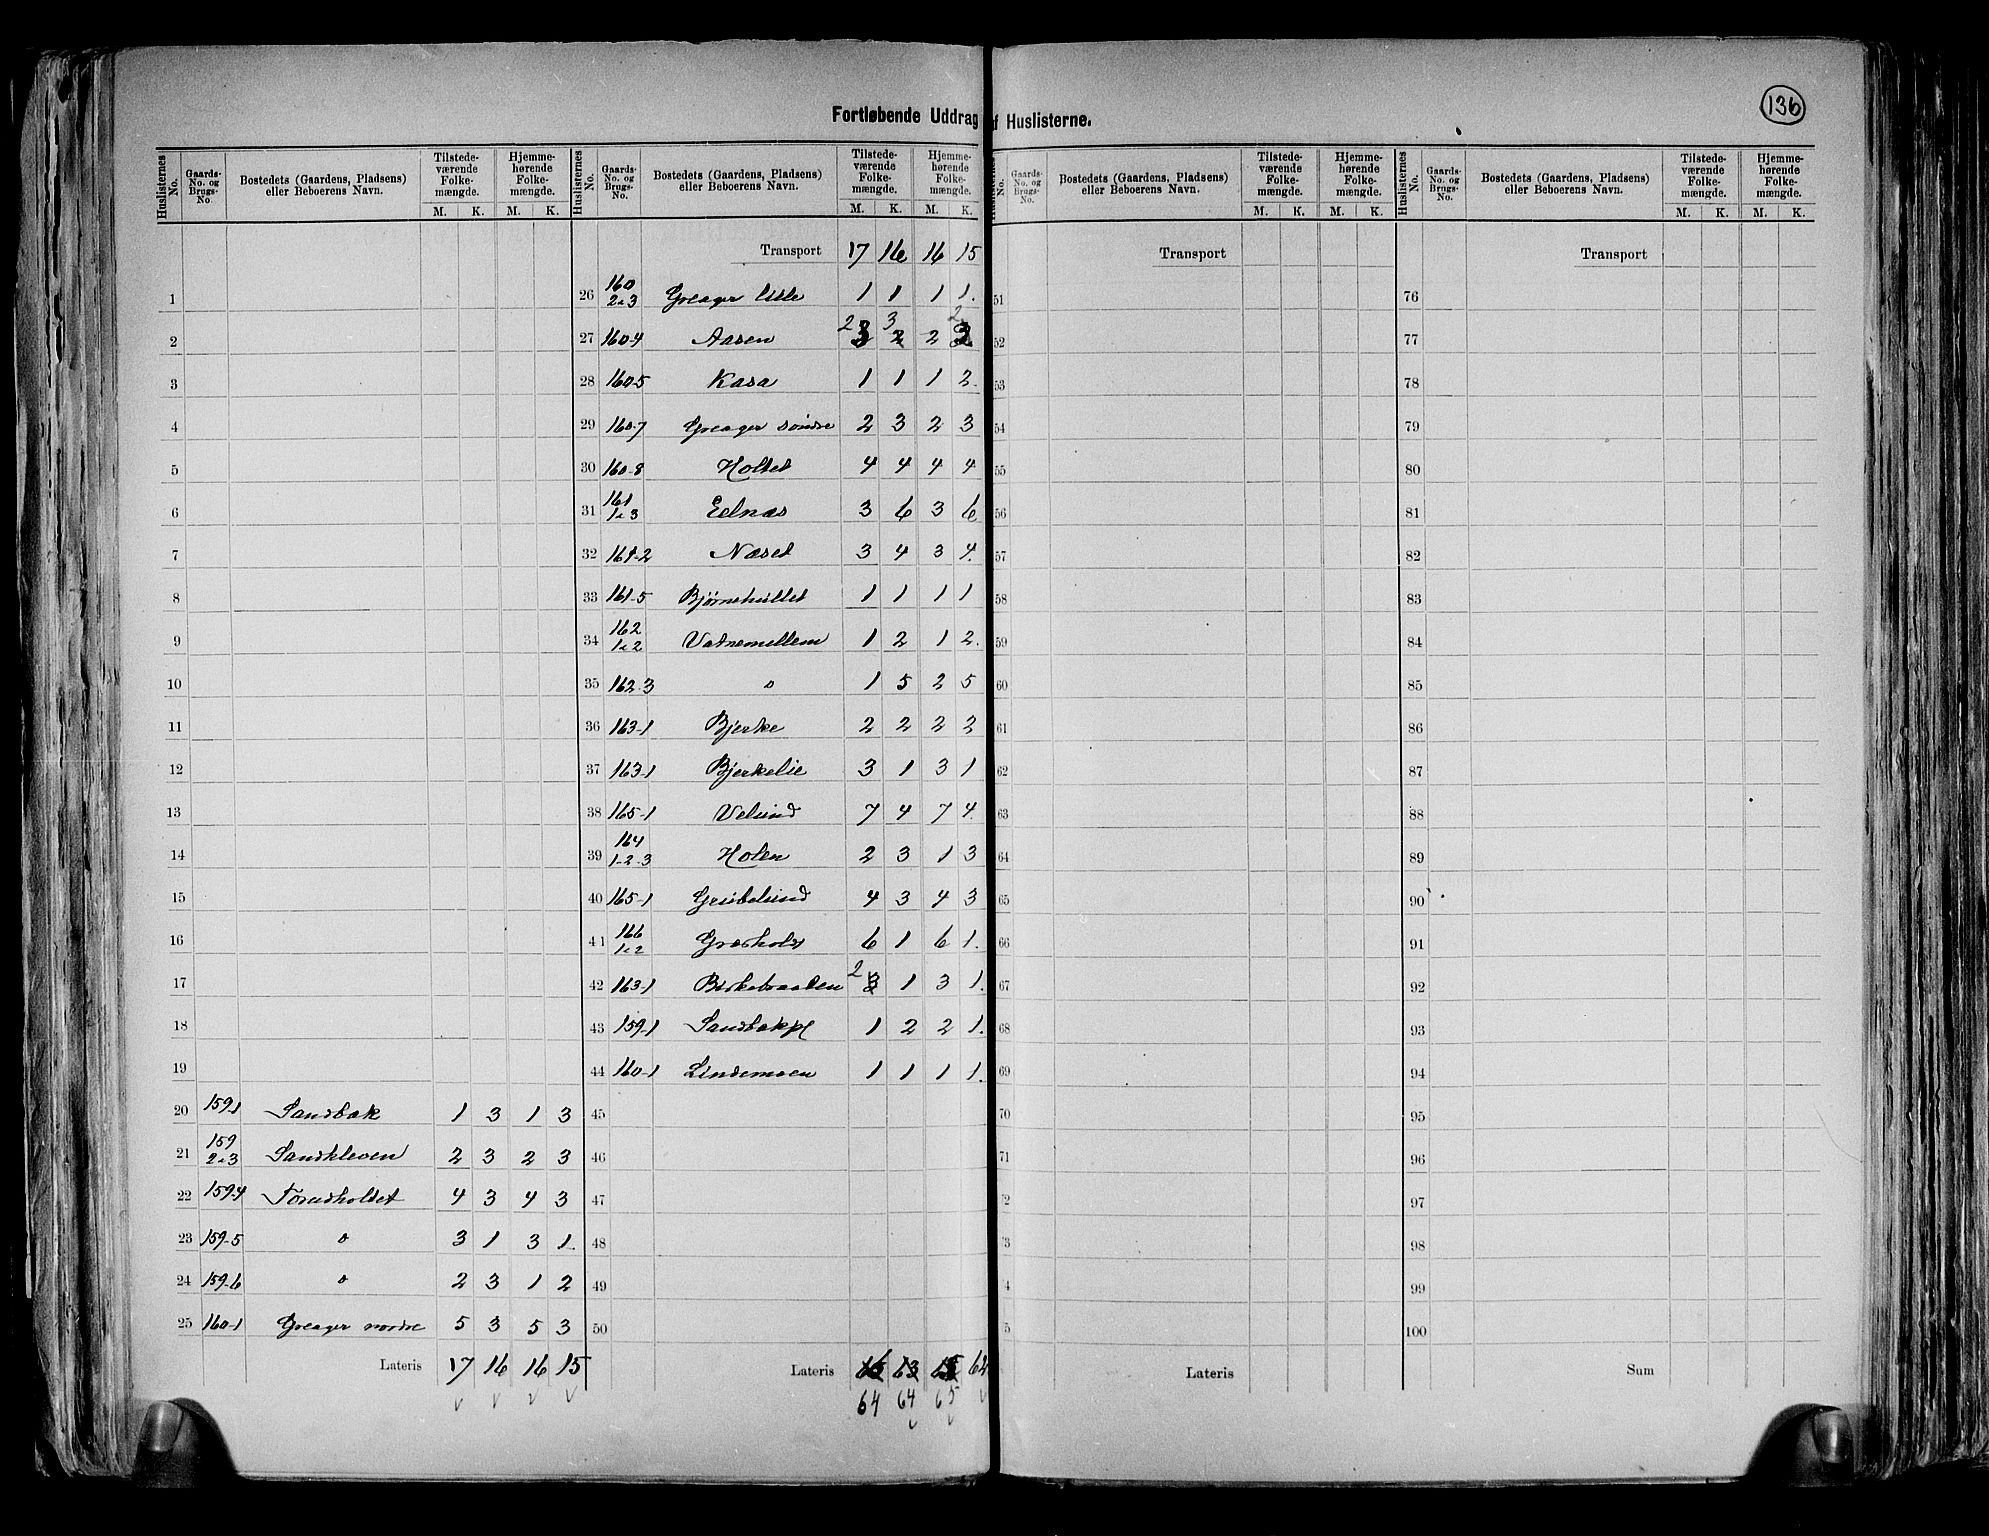 136
Fortløbende Uddrag af Huslisterne.
Huslisternes No. Gaards-No. og Brugs-No. Bostedets (Gaardens, Pladsens) eller Beboerens Navn. Tilstedeværende Folkemængde. M. K. Hjemmehørende Folkemængde. M. K.
1
2
3
4
5
6
7
8
9
10
11
12
13
14
15
16
17
18
19
20 159-1 Sandbak 1 3 1 3
21 159 2&3 Sandkleven 2 3 2 3
22 159-4 4 3 4 3
23 159-5 o 3 1 3 1
24 159-6 o 2 3 1 2
25 160-1 Greager nordre 5 3 5 3
Lateris 17 16 16 15
Huslisternes No. Gaards-No. og Brugs-No. Bostedets (Gaardens, Pladsens) eller Beboerens Navn. Tilstedeværende Folkemængde. M. K. Hjemmehørende Folkemængde. M. K.
Transport 17 16 16 15
26 160 2&3 Greager lille 1 1 1 1.
27 160-4 Aasen 2 3 3 2 2 2 3
28 160-5 Kasa 1 1 1 2.
29 160-7 Greager søndre 2 3 2 3
30 160-8 Holtet 4 4 4 4
31 161 1&3 Eelnæs 3 6 3 6
32 161-2 Næset 3 4 3 4.
33 161-5 Bjørnehullet 1 1 1 1
34 162 1&2 Vatnemellem 1 2 1 2.
35 162-3 o 1 5 2 5
36 163-1 Bjerke 2 2 2 2
37 163-1 Bjerkelie 3 1 3 1
38 165-1 Velund 7 4 7 4.
39 164 1-2-3 Holen 2 3 1 3
40 165-1 Grubelund 4 3 4 3
41 166 1&2 Græsholt 6 1 6 1.
42 163-1 Birkebraaten 2 3 1 3 1.
43 159-1 Sandbakpl 1 2 2 1.
44 160-1 Lindemoen 1 1 1 1.
45
46
47
48
49
50
Lateris 62
64 64 65
Gaards-No. og Brugs-No. Bostedets (Gaardens, Pladsens) eller Beboerens Navn. Tilstedeværende Folkemængde. M. K. Hjemmehørende Folkemængde. M. K.
Transport
51
52
53
54
55
56
57
58
59
60
61
62
63
64
65
66
67
68
69
70
71
72
73
74
75
Lateris
Huslisternes No. Gaards-No. og Brugs-No. Bostedets (Gaardens, Pladsens) eller Beboerens Navn. Tilstedeværende Folkemængde. M. K. Hjemmehørende Folkemængde. M. K.
Transport
76
77
78
79
80
81
82
83
84
85
86
87
88
89
90
91
92
93
94
95
96
97
98
99
100
Sum